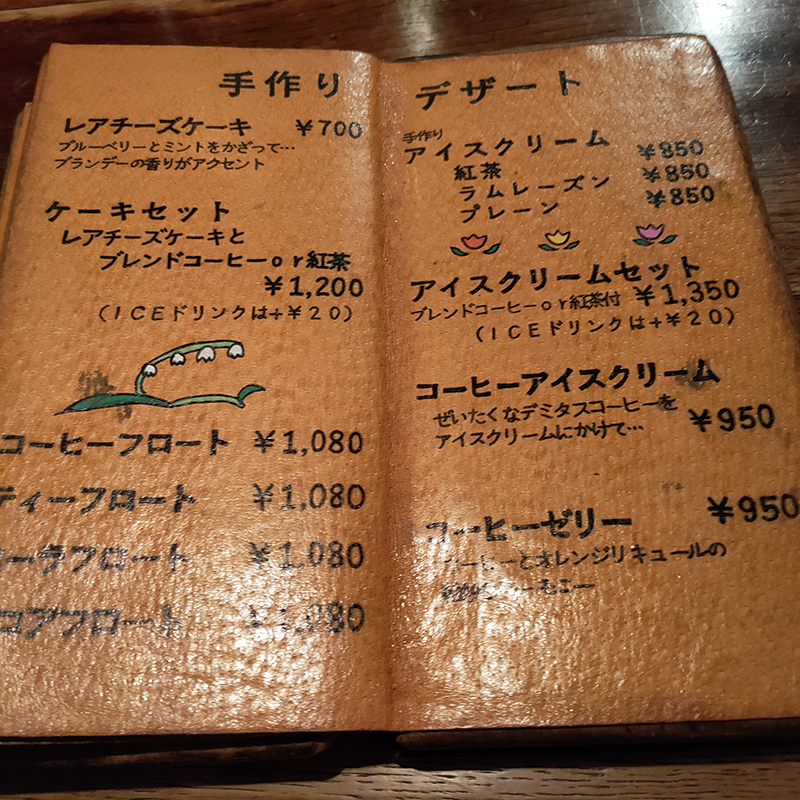 手作り
レアチーズケーキ ￥700
ブルーベリーとミントをかざって…
ブランデーの香りがアクセント
ケーキセット
レアチーズケーキと
ブレンドコーヒーor紅茶
￥1,200
(ICEドリンクは+￥20)
コーヒーフロート ￥1,080
ティーフロート ￥1,080
ーラフロート ￥1,080
コアフロート ￥1,080
デザート
手作り
アイスクリーム ￥850
紅茶 ￥850
ラムレーズン ￥850
プレーン
アイスクリームセット
ブレンドコーヒーor紅茶付 ￥1,350
(ICEドリンクは+￥20)
コーヒーアイスクリーム
ぜいたくなデミタスコーヒーを
アイスクリームにかけて… ￥950
コーヒーゼリー ￥950
コーヒーとオレンジリキュールの